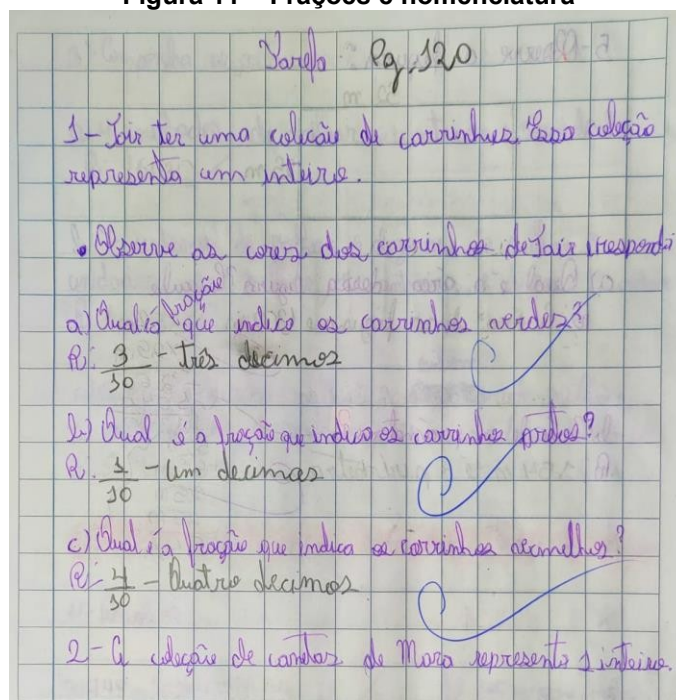 Figura 11 – Frações e nomenclatura
Tarefa Pg. 120
1- Jair ter uma coleção de carrinhos. Essa coleção
representa um inteiro.
• Observe as cores dos carrinhos de Jair responda
fração
a) Qual é que indica os carrinhos verdes?
R: 3/10 - três decimos
b) Qual é a fração que indica os carrinhos pretos?
R. 1/10 - um decimas
c) Qual é a fração que indica os carrinhos vermelhos?
R: 4/10 - Quatro decimos
2- A coleção de canetas de Mara representa 1 inteiro.